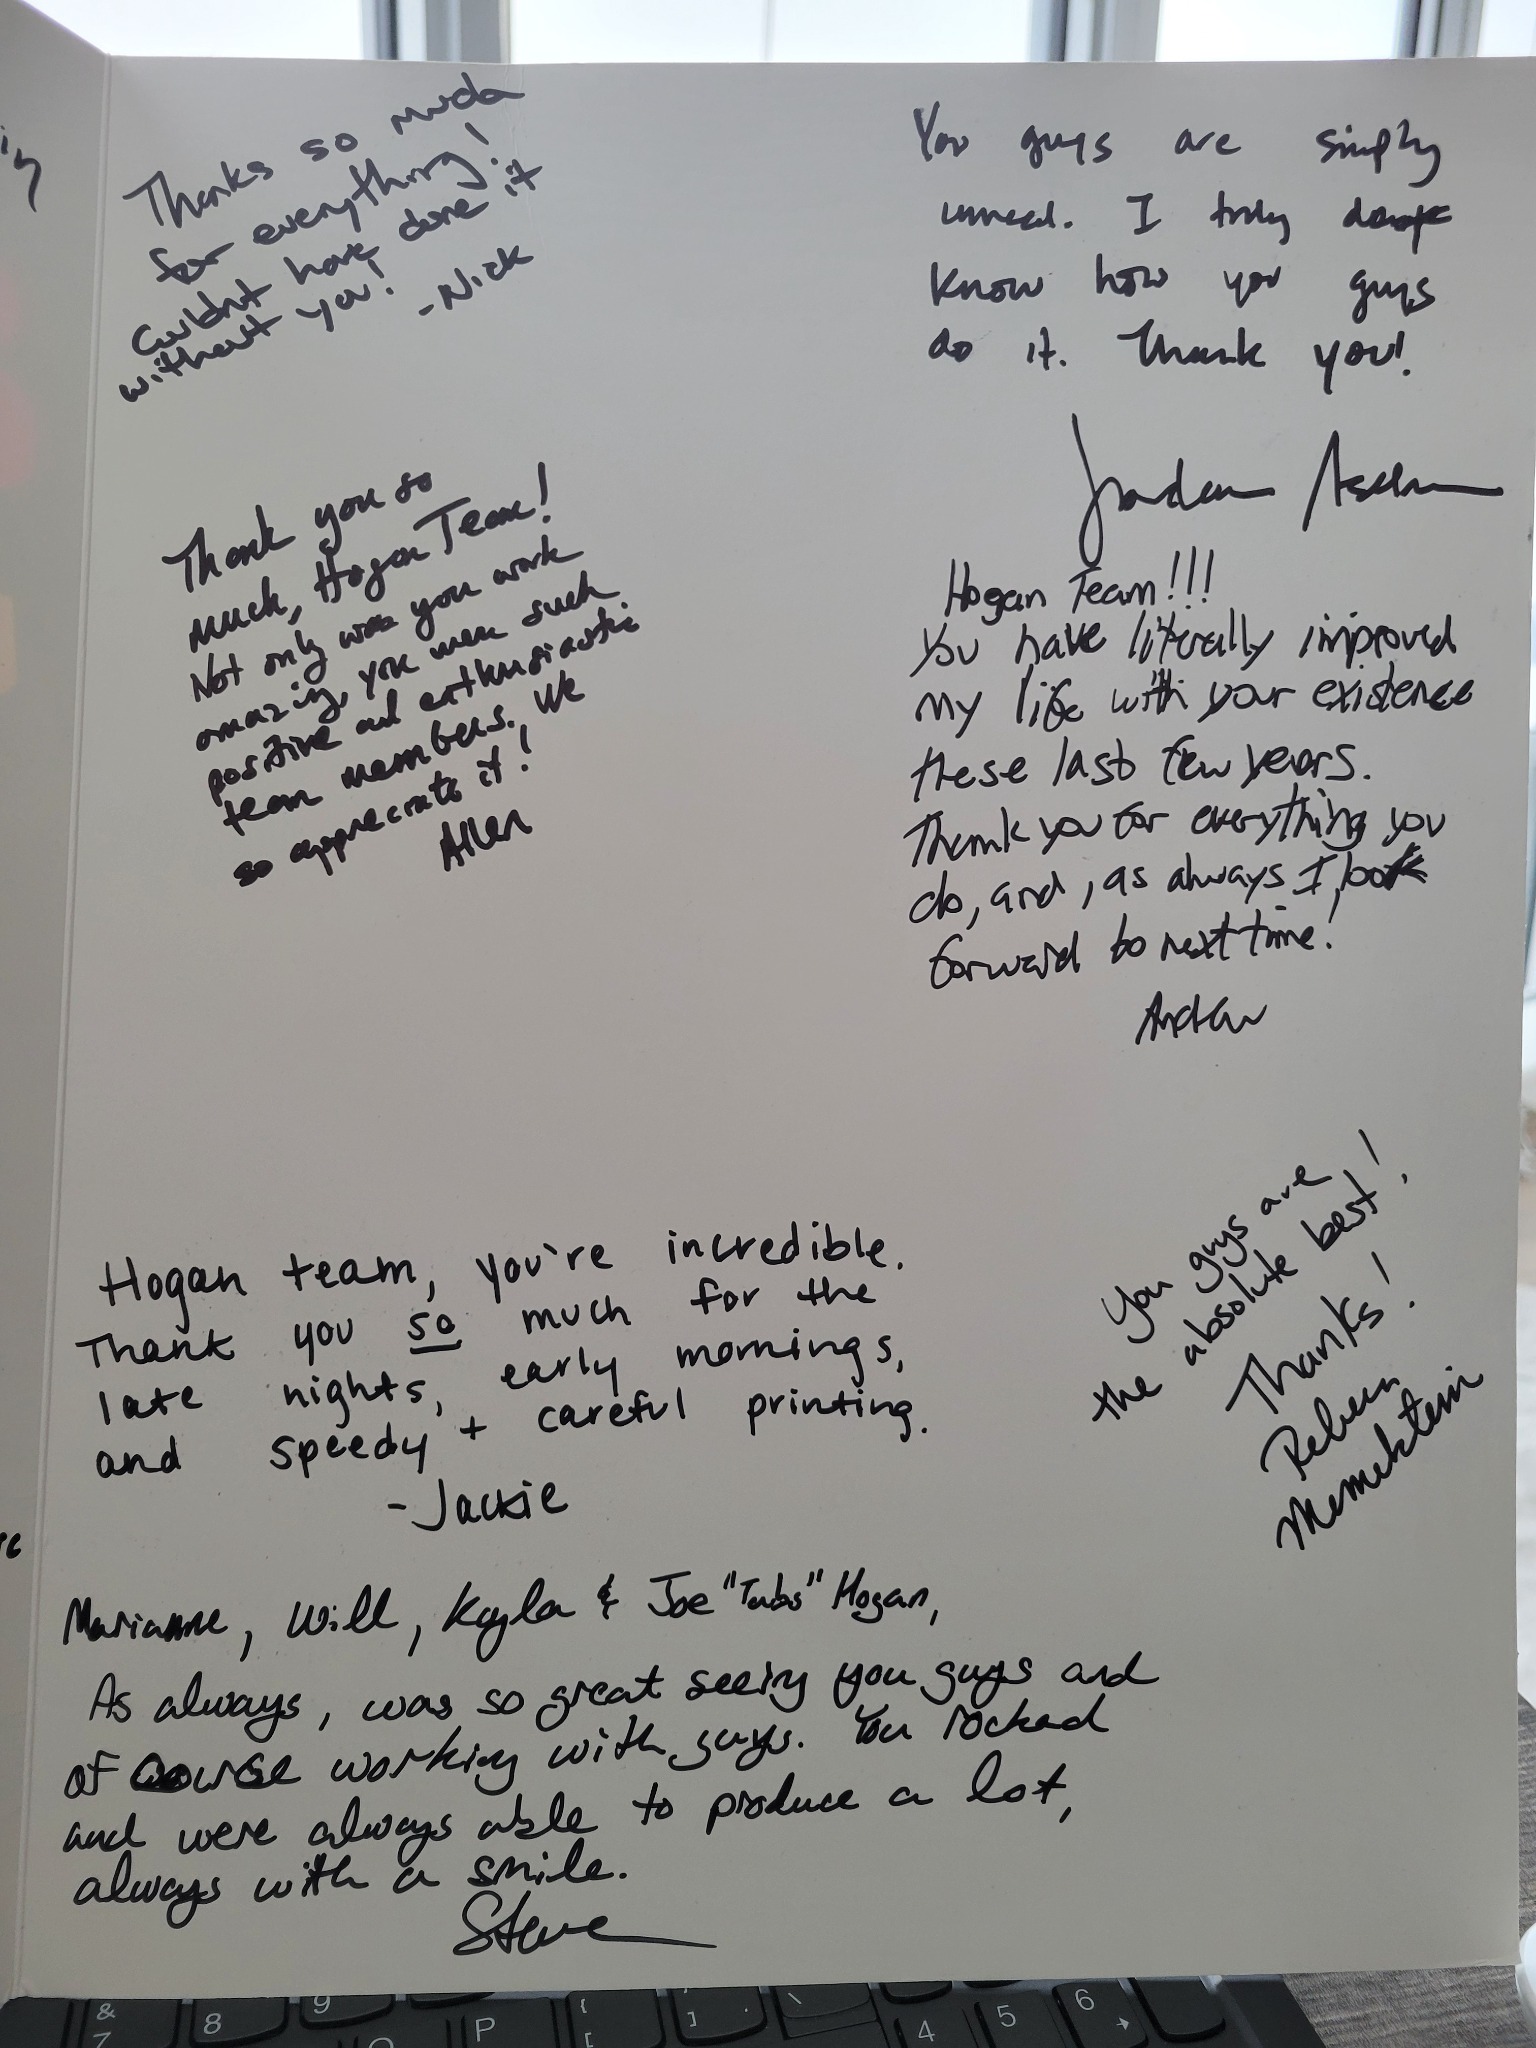 Thanks so much
for everything!
Couldn't have done it
without you!
-Nick
You guys are simply
unreal. I truly don't
know how you guys
do it. Thank you!
Jordan
Thank you so
much, Hogan Team!
Not only was you work
amazing, you were such
positive and enthusiastic
team members. We
so appreciate it!
Allen
Hogan Team!!!
You have literally improved
my life with your existence
these last few years.
Thank you for everything you
do, and, as always I look
forward to next time!
Hogan team, you're incredible.
Thank you so much for the
late nights, early mornings,
and speedy + careful printing.
-Jackie
You guys are
the absolute best!
Thanks!
Marianne, Will, Kayla & Joe "Tabs" Hogan,
As always, was so great seeing you guys and
of course working with guys. You rocked
and were always able to produce a lot,
always with a smile.
Steve
&
7
8
9
P
[
]
\
4
5
6